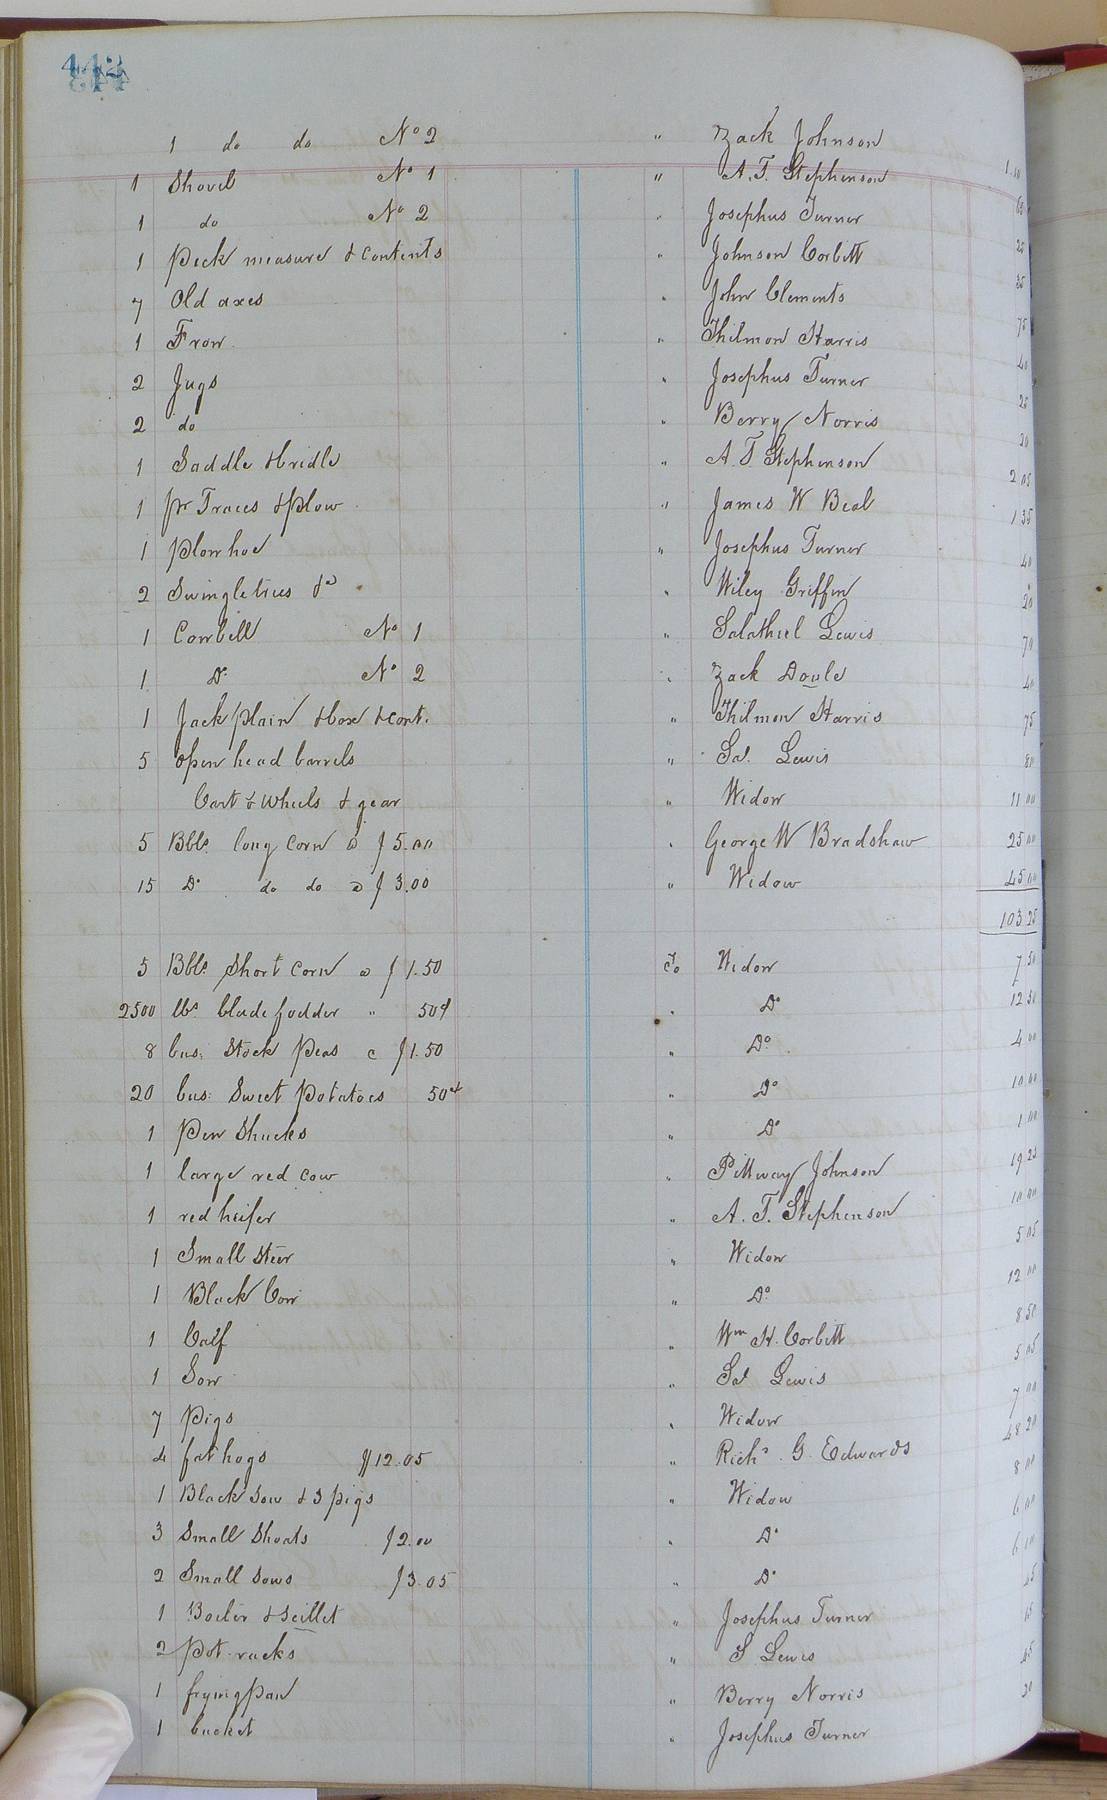 442
1 do do No 2 " Zack Johnson
1 Shovel No 1 " A. T. Stephenson 1.50
1 do No 2 " Josephus Turner
1 Peck measure & contents " Johnson Corbett 25
7 Old axes " John Clements
1 Frow " Thilmon Harris 75
2 Jugs " Josephus Turner 40
2 do " Berry Norris 25
1 Saddle & bridle " A. T. Stephenson 20
1 pr Traces & plow " James W Beal 2 05
1 Plowhoe " Josephus Turner 1 35
2 Swingletrees &c " Wiley Griffin 40
1 Cowbell No 1 " Salathiel Lewis 20
1 Do No 2 " Zack Doule 70
1 Jack plain & box & cont. " Thilmon Harris 40
5 open head barrels " Sal. Lewis 75
Cart & wheels & gear " Widow 80
5 Bbls. long corn @ $5.00 " George W Bradshaw 11 00
15 Do do do @ $3.00 " Widow 25 00
45 00
103 25
5 Bbls Short corn @ $1.50 To Widow 7 50
2500 lbs. blade fodder " 50¢ " Do 12 50
8 bus: Stock Peas c $1.50 " Do. 4 00
20 bus: Sweet Potatoes 50¢ " Do 10 00
1 Pen Shucks " Do 1 00
1 large red cow " Pittway Johnson 19 25
1 red heifer " A. T. Stephenson 10 00
1 Small Steer " Widow 5 05
1 Black Cow " Do. 12 00
1 Calf " Wm H. Corbett 8 50
1 Sow " Sal Lewis 5 05
7 Pigs " Widow 7 00
4 fat hogs $12.05 " Richd. G. Edwards 48 20
1 Black Sow & 3 pigs " Widow 8 00
3 Small Shoats $2.00 " Do 6 00
2 Small Sows $3.05 " Do 6 10
1 Boiler & Scillet " Josephus Turner 45
2 Pot racks " S. Lewis
1 frying pan " Berry Norris 45
1 bucket " Josephus Turner 20